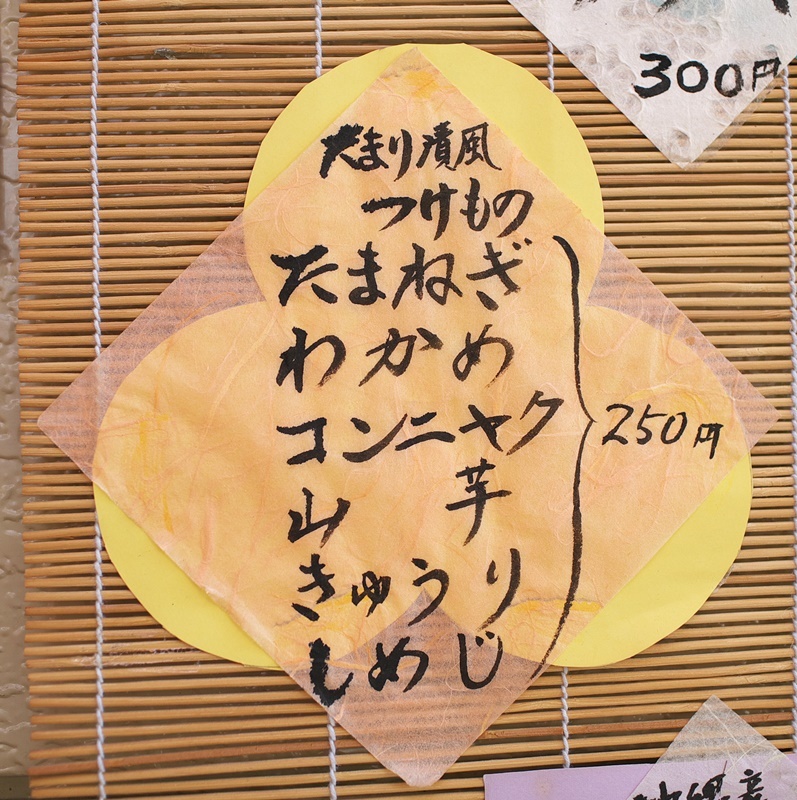 300円
たまり漬風
つけもの
たまねぎ
わかめ
コンニャク
山芋
きゅうり
しめじ
250円